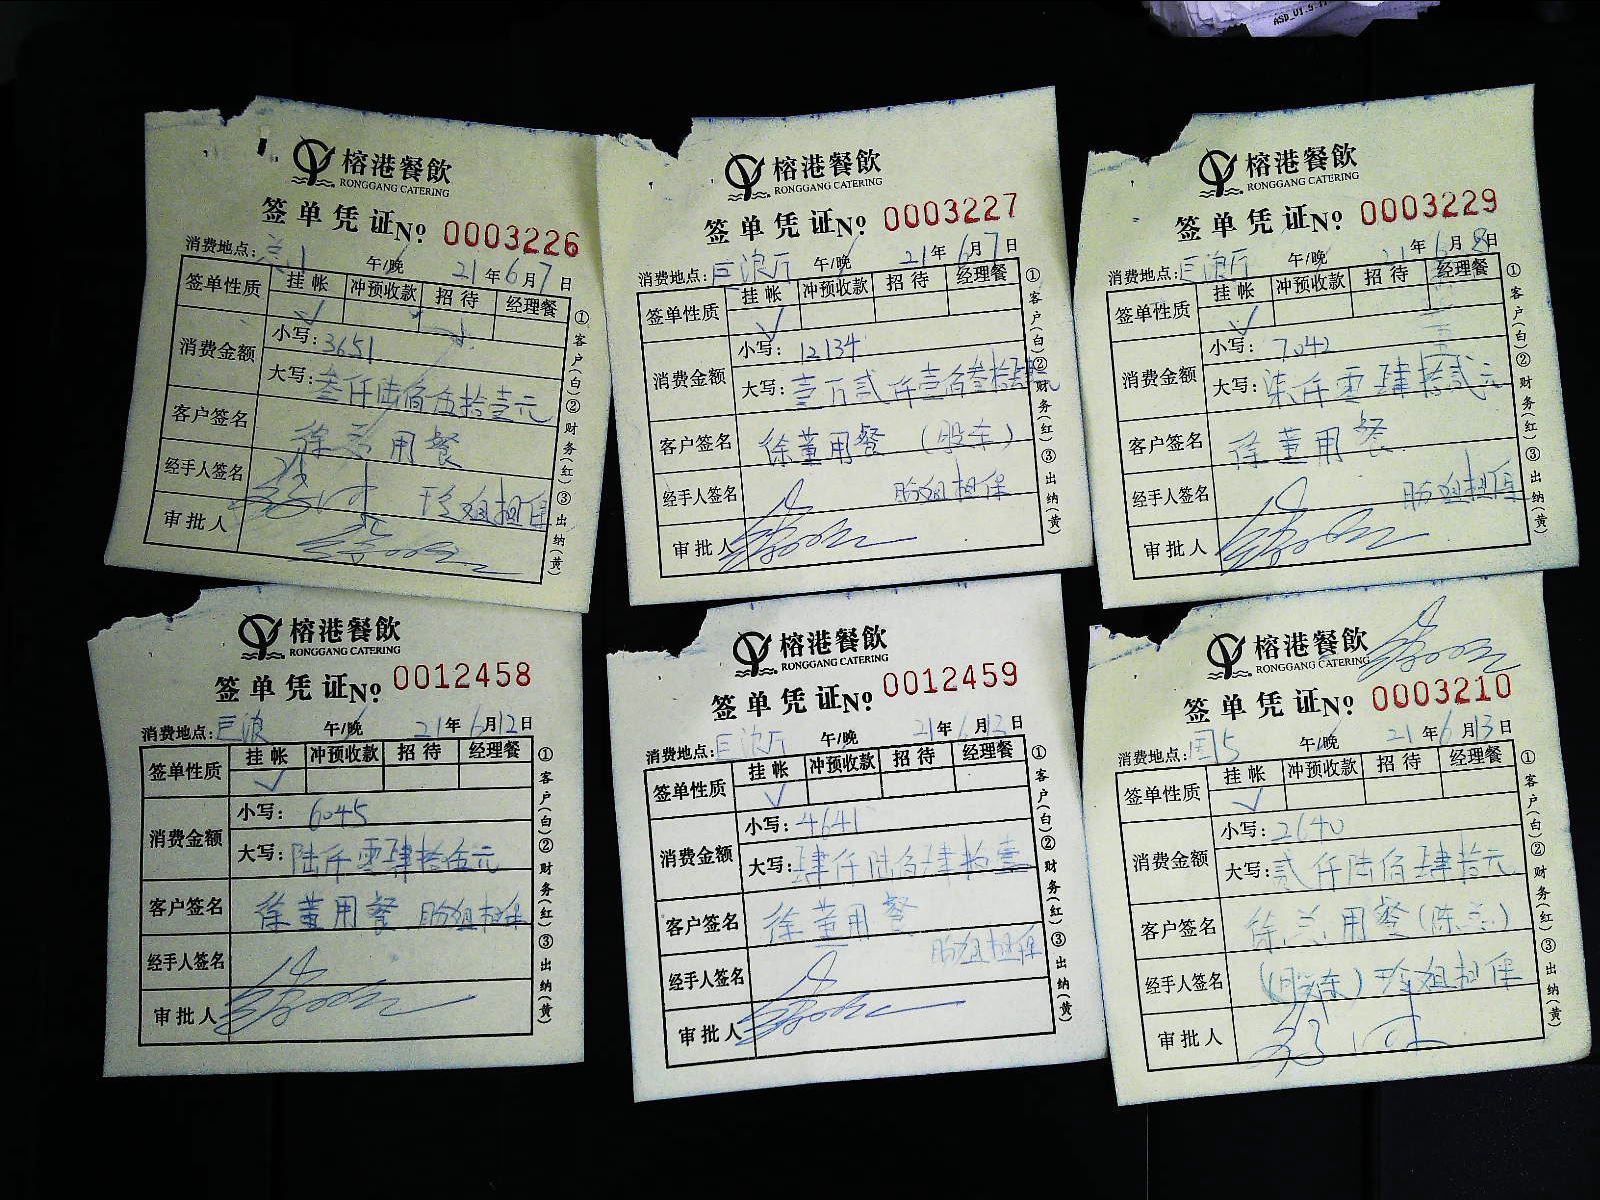 ASD_U1.5.
榕港餐飲
RONGGANG CATERING
签单凭证No 0003226
消费地点: 午/晚 21年6月7日
签单性质 挂帐 冲预收款 招待 经理餐
✓
消费金额 小写: 3651
大写: 叁仟陆佰伍拾壹元
客户签名 徐兰用餐
经手人签名 玲姐担保
审批人
①客户(白)②财务(红)③出纳(黄)
榕港餐飲
RONGGANG CATERING
签单凭证No 0003227
消费地点: 巨浪厅 午/晚 21年6月7日
签单性质 挂帐 冲预收款 招待 经理餐
✓
消费金额 小写: 12134
大写: 壹万贰仟壹佰叁拾肆元
客户签名 徐董用餐 (股东)
经手人签名 姐担保
审批人
①客户(白)②财务(红)③出纳(黄)
榕港餐飲
RONGGANG CATERING
签单凭证No 0003229
消费地点: 巨浪厅 午/晚 21年6月8日
签单性质 挂帐 冲预收款 招待 经理餐
✓
消费金额 小写: 7042
大写: 柒仟零肆拾贰元
客户签名 徐董用餐
经手人签名 姐担保
审批人
①客户(白)②财务(红)③出纳(黄)
榕港餐飲
RONGGANG CATERING
签单凭证No 0012458
消费地点: 巨浪 午/晚 21年6月12日
签单性质 挂帐 冲预收款 招待 经理餐
✓
消费金额 小写: 6045
大写: 陆仟零肆拾伍元
客户签名 徐董用餐 姐担保
经手人签名
审批人
①客户(白)②财务(红)③出纳(黄)
榕港餐飲
RONGGANG CATERING
签单凭证No 0012459
消费地点: 巨浪厅 午/晚 21年6月13日
签单性质 挂帐 冲预收款 招待 经理餐
✓
消费金额 小写: 4641
大写: 肆仟陆佰肆拾壹
客户签名 徐董用餐
姐担保
经手人签名
审批人
①客户(白)②财务(红)③出纳(黄)
榕港餐飲
RONGGANG CATERING
签单凭证No 0003210
消费地点: 国5 午/晚 21年6月13日
签单性质 挂帐 冲预收款 招待 经理餐
✓
消费金额 小写: 2640
大写: 贰仟陆佰肆拾元
客户签名 徐兰用餐(陈兰)
经手人签名 (股东)玲姐担保
审批人
①客户(白)②财务(红)③出纳(黄)